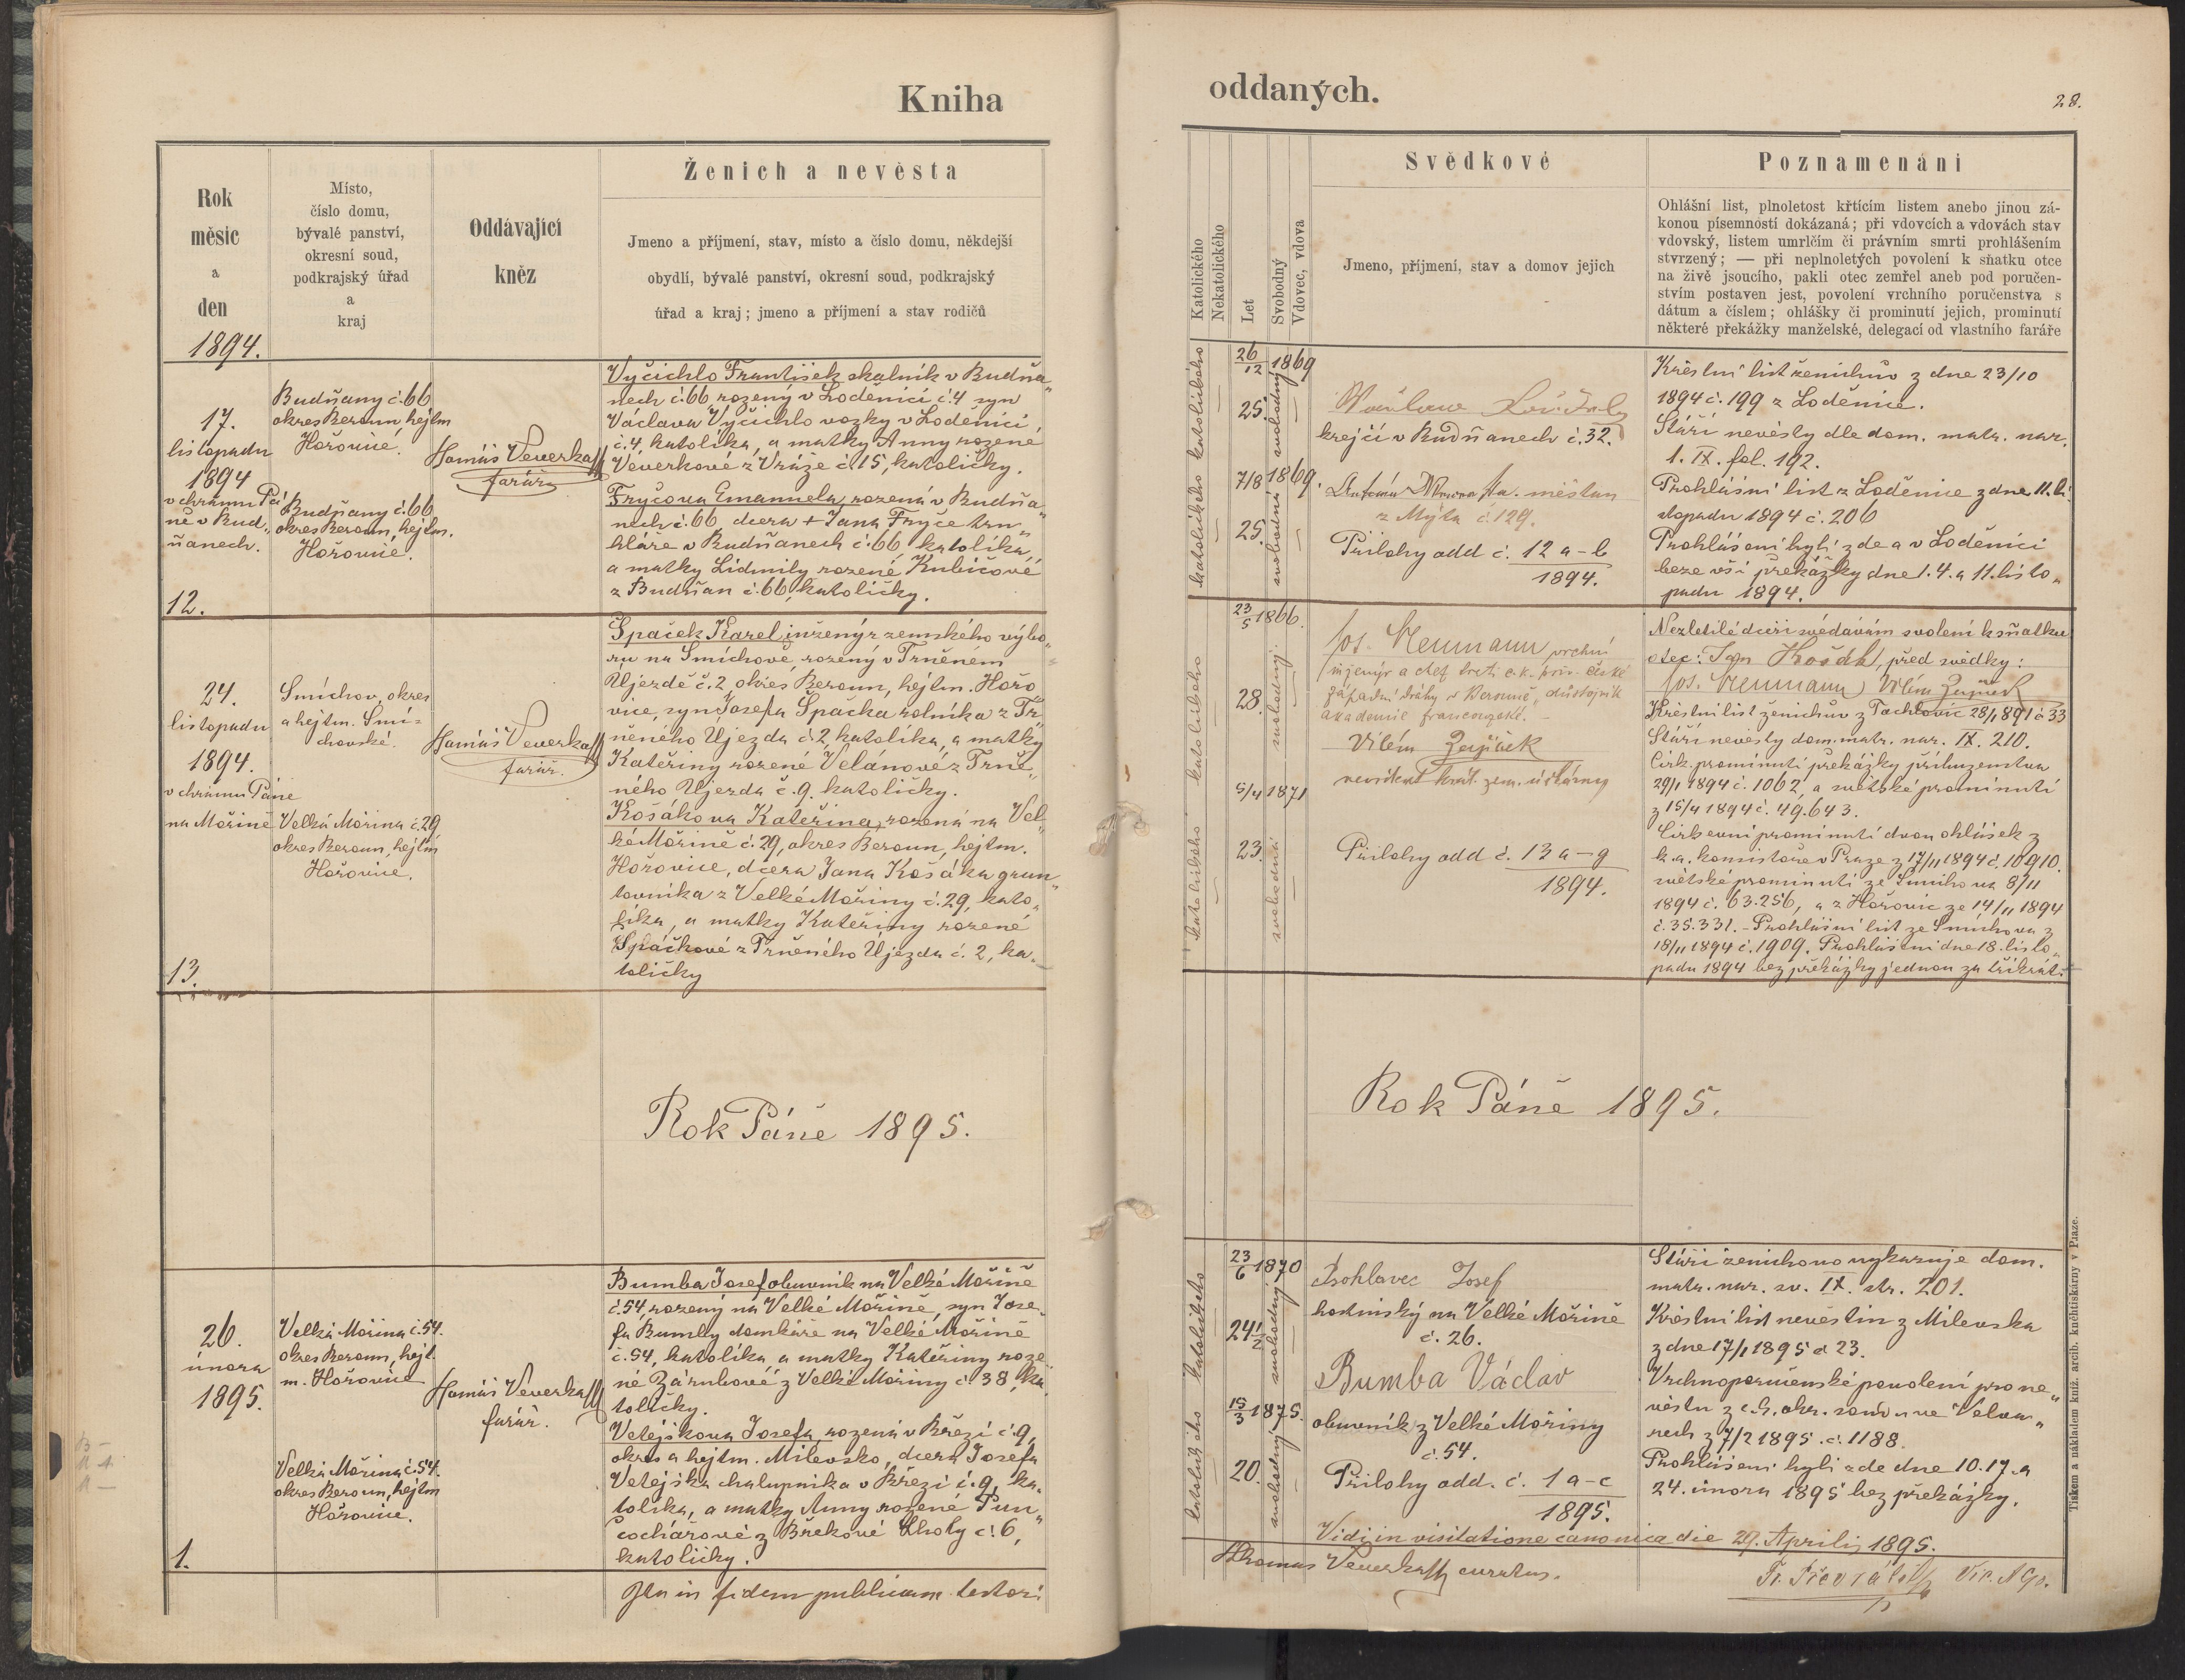 Kniha
oddaných.
28.
Rok
měsíc
a
den
1894.
Místo,
číslo domu,
bývalé panství,
okresní soud,
podkrajský úřad
a
kraj
Oddávající
kněz
Ženich a nevěsta
Jmeno a příjmení, stav, místo a číslo domu, někdejší
obydlí, bývalé panství, okresní soud, podkrajský
úřad a kraj; jmeno a příjmení a stav rodičů
17.
listopadu
1894
v chrámu Pá
ně v Bud„
ňanech.
12.
Budňany č.66
okres Beroun, hejtm
Hořovice.
Budňany č.66
okres Beroun, hejtm.
Hořovice.
Tomáš Veverka
farář
Vyčichlo František skalník v Budňa„
nech č.66 rozený v Loděnici č.4 syn
Václava Vyčichlo vozky v Loděnici
č.4, katolíka, a matky Anny rozené
Veverkové z Vráže č.15, katoličky.
Fryčova Emanuela, rozená v Budňa„
nech č.66, dcera + Jana Fryče tru„
hláře v Budňanech č.66 katolíka,
a matky Lidmily rozené Kubicové
z Budňan č.66, katoličky.
24.
listopadu
1894.
v chrámu Páně
na Mořině
13.
Smíchov, okres
a hejtm. Smí-
chovské.
Velká Mořina č.29
okres Beroun, hejtm
Hořovice.
Tomáš Veverka
farář.
Špaček Karel, inženýr zemského výbo„
ru na Smíchově, rozený v Trněném
Újezdě č.2 okres Beroun, hejtm. Hořo„
vice, syn Josefa Špačka rolníka z Tr„
něného Újezda č.2, katolíka, a matky
Kateřiny rozené Velánové z Trně„
ného Újezda č.9. katoličky.
Košákova Kateřina, rozená na Vel„
ké Mořině č.29, okres Beroun, hejtm.
Hořovice, dcera Jana Košáka grun„
tovníka z Velké Mořiny č.29, kato„
líka, a matky Kateřiny rozené
Špačkové z Trněného Újezda č.2, ka„
toličky
Rok Páně 1895.
26.
února
1895.
1.
Velká Mořina č.54.
okres Beroun, hejt
m. Hořovice
Velká Mořina č.54.
okres Beroun, hejtm
Hořovice.
Tomáš Veverka
farář.
Bumba Josef obuvník na Velké Mořině
č.54, rozený na Velké Mořině, syn Jose„
fa Bumby domkáře na Velké Mořině
č.54, katolíka, a matky Kateřiny roze„
né Zárubové z Velké Mořiny č.38, ka„
toličky.
Vetejškova Josefa, rozená v Březí č.9,
okres a hejtm. Milevsko, dcera Josefa
Vetejška chalupníka v Březí č.9, ka„
tolíka, a matky Anny rozené Pun„
čochářové z Lhoty č.6,
katoličky.
Ita in fidem publicam testor:
Katolického
Nekatolického
Let
Svobodný
Vdovec, vdova
Svědkové
Jmeno, příjmení, stav a domov jejich
Poznamenáni
Ohlášní list, plnoletost křtícím listem anebo jinou zá-
konou písemností dokázaná; při vdovcích a vdovách stav
vdovský, listem umrlčím či právním smrti prohlášením
stvrzený; — při neplnoletých povolení k sňatku otce
na živě jsoucího, pakli otec zemřel aneb pod poručen-
stvím postaven jest, povolení vrchního poručenstva s
dátum a číslem; ohlášky či prominutí jejich, prominutí
některé překážky manželské, delegací od vlastního faráře
katolického
26/12 1869
25.
svobodný
katolického
7/8 1869.
25.
svobodná
Václav
krejčí v Budňanech č.32.
Antonín měšťan
z Mýta č.129.
Přílohy add č. 12 a–b
1894.
Křestní list ženichův z dne 23/10
1894 č.199 z Loděnice.
Stáří nevěsty dle dom. matr. nar.
1. IX. fol. 192.
Prohlášní list z Loděnice z dne 11. li„
stopadu 1894 č.206
Prohlášeni byli zde a v Loděnici
beze vší překážky dne 1. 4. a 11. listo„
padu 1894.
katolického
23/5 1866.
28.
svobodný.
katolického
5/4 1871
23.
svobodná
Jos. Neumann vrchní
injenýr a chef trati c.k. priv. české
západní dráhy v Berouně, důstojník
akademie francouzské.
Vilém
Přílohy add č. 13 a–g
1894.
Nezletilé dceři svédávám svolení k sňatku
otec: Jan Košák, před svědky:
Jos. Neumann, Vilém
Křestní list ženichův z Tachlovic 28/1 891 č 33
Stáří nevěsty dom. matr. nar. IX. 210.
Cirk. prominutí překážky příbuzenstva
29/1 1894 č.1062, a světské prominutí
z 15/4 1894 č. 49.643.
Církevní prominutí dvou ohlášek z
k.a. konsistoře v Praze z 17/11 1894 č.10910.
světské prominutí ze Smíchova 8/11
1894 č. 63.256, a z Hořovic ze 14/11 1894
č.35.331. – Prohlášní list ze Smíchova z
18/11 1894 č.1909. Prohlášeni dne 18. listo„
padu 1894 bez překážky jednou za třikrát.
Rok Páně 1895.
katolického
23/6 1870
24 1/2
svobodný
katolického
15/3 1875.
20.
svobodný
Psohlavec Josef
hostinský na Velké Mořině
č.26.
Bumba Václav
obuvník z Velké Mořiny
č.54.
Přílohy add. č. 1 a–c
1895.
Stáří ženichovo vykazuje dom.
matr. nar. sv. IX. str. 201.
Křestní list nevěstin z Milevska
z dne 17/1 1895 č 23.
Vrchnoporučenské povolení pro ne„
věstu z c.k. okr. soudu ve Velva„
rech z 7/2 1895. č.1188.
Prohlášeni byli zde dne 10. 17. a
24. února 1895 bez překážky.
Vidi in visitatione canonica die 29. Aprilis 1895.
Thomas Veverka curatus.
Tiskem a nákladem kníž. arcib. knihtiskárny v Praze.